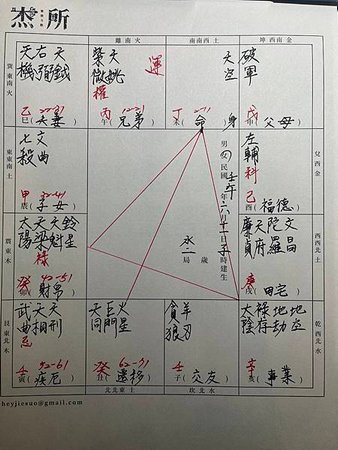 杰所
巽東南火
離南南火
南南西土
坤西南金
天機
右弼
天鉞
22-31
己巳
夫妻
紫微
天姚
權
運
丙午
兄弟
天空
丁未
命
身
破軍
戊申
父母
東東南土
七殺
文曲
甲辰
32-41
子女
男
民國
年六月十一日子時建生
壬午
水二局
歲
左輔
科
己酉
福德
兌西金
震東木
太陽
天梁
天魁
鈴星
祿
癸卯
42-51
財帛
廉貞
天府
陀羅
文昌
庚戌
田宅
西西北土
艮東北木
武曲
天相
天刑
忌
壬寅
52-61
疾厄
天同
巨門
火星
癸丑
62-71
遷移
貪狼
羊刃
壬子
交友
太陰
祿存
地劫
地空
辛亥
事業
乾西北水
北北東土
坎北水
heyjiesuo@gmail.com